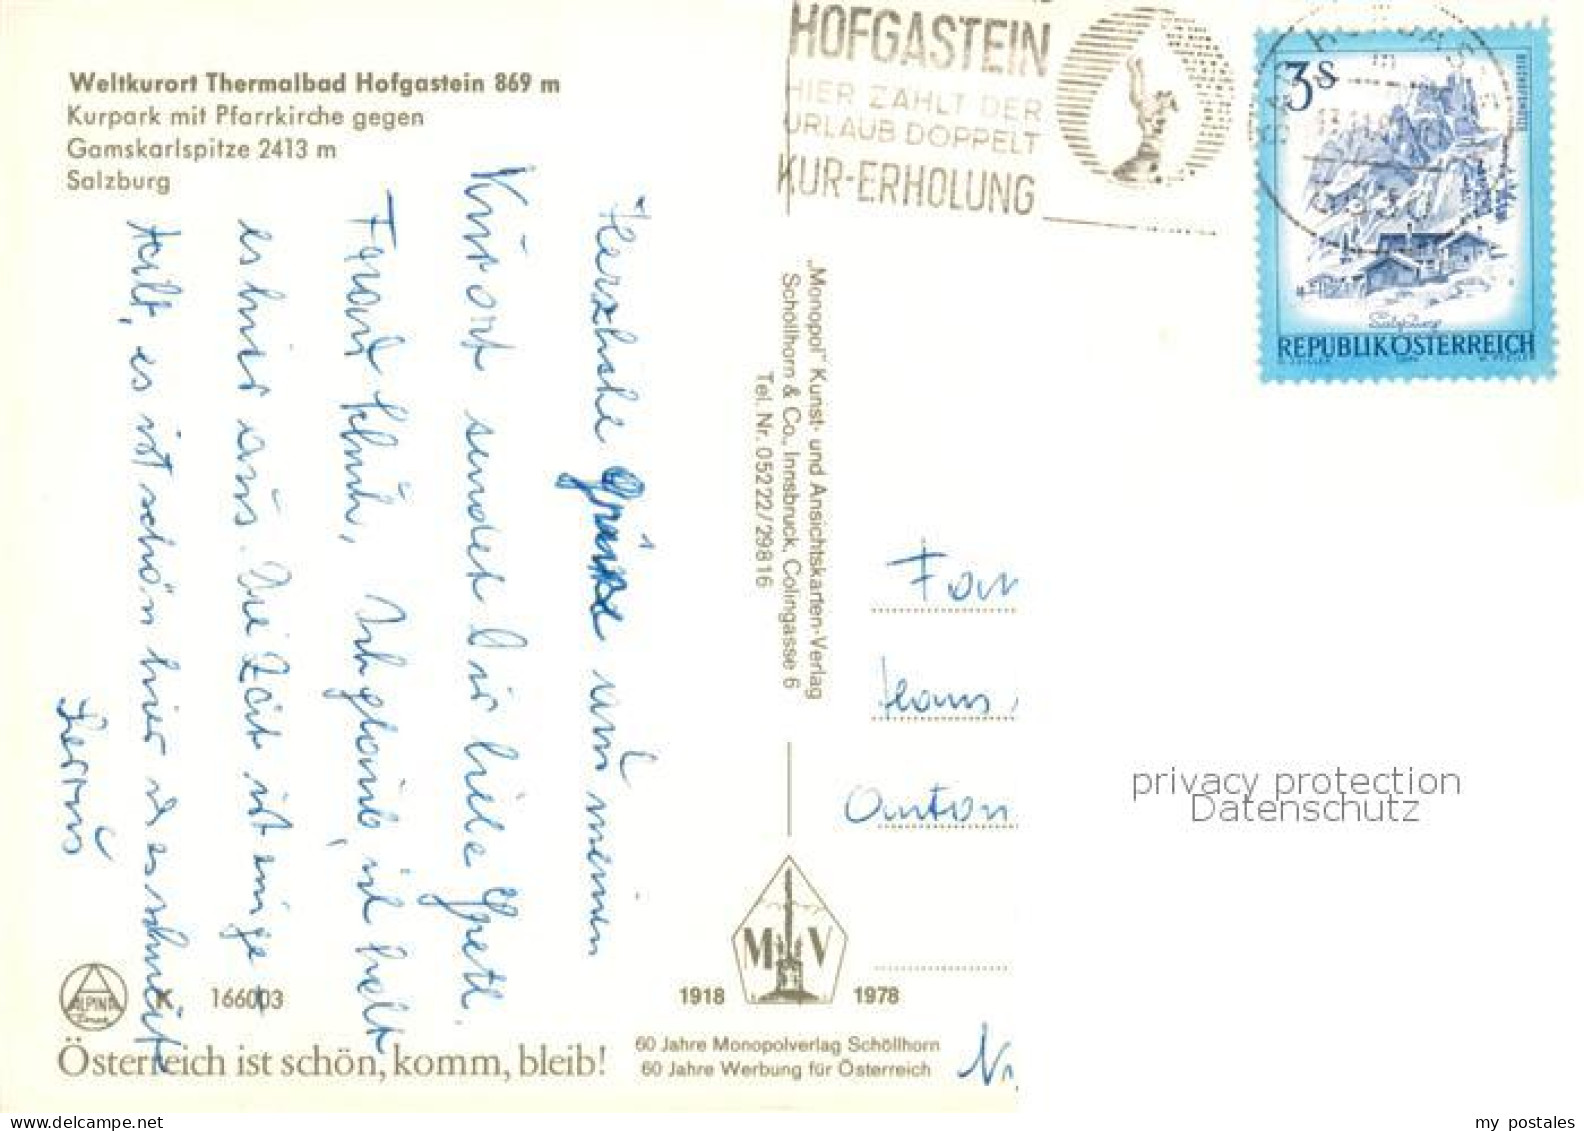 Weltkurort Thermalbad Hofgastein 869 m
Kurpark mit Pfarrkirche gegen
Gamskarlspitze 2413 m
Salzburg
HOFGASTEIN
HIER ZÄHLT DER
URLAUB DOPPELT
KUR-ERHOLUNG
3S
Salzburg
REPUBLIK ÖSTERREICH
Herzliche Grüsse und meinen
Kurort sendet Dir liebe Gretl.
Ich glaub, ich halt
es hier aus. Die Zeit ist
teilt, es ist schön hier u. es schneit
Servus
„Monopol" Kunst- und Ansichtskarten-Verlag
Schöllhorn & Co., Innsbruck, Colingasse 6
Tel. Nr. 05222/29816
Fam
Hans
Anton
privacy protection
Datenschutz
MV
1918 1978
ALPINA
K 166003
Österreich ist schön, komm, bleib!
60 Jahre Monopolverlag Schöllhorn
60 Jahre Werbung für Österreich
my postales